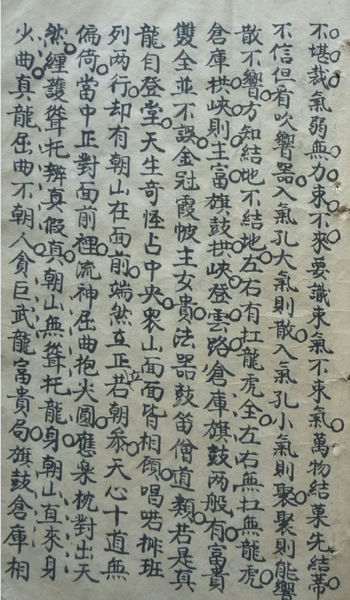 不堪裁氣弱無力束不來要識束氣不來氣萬物結菓先結蒂
不信但看吹響器入氣孔大氣則散入氣孔小氣則聚聚則能響
散不響方知結地不結地左右有扛龍虎全左右無扛無龍虎
倉庫拱峽則主富旗鼓拱峽登雲路倉庫旗鼓兩般有富貴
雙全並不誤金冠霞帔主女貴法器鼓笛僧道類若是真
龍自登堂天生奇怪占中央衆山面面皆相顧唱喏排班
列两行却有朝山在面前端然立正若朝叅天心十道無
偏倚當中正對面前裡流神屈曲抱尖圓應樂枕對出天
然纏護聳托辨真假真朝山無聳托龍身朝山直來身
少曲真龍屈曲不朝人貪巨武龍富貴局旗鼓倉庫相